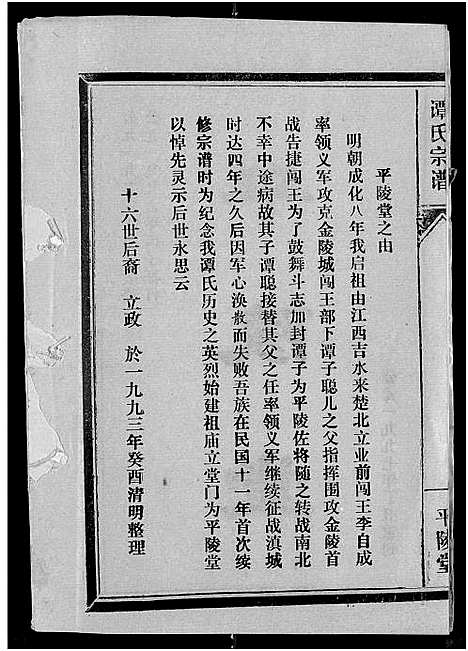 谭氏宗谱
平陵堂
平陵堂之由
明朝成化八年我启祖由江西吉水来楚北立业前闯王李自成
率领义军攻克金陵城闯王部下谭子聪儿之父指挥围攻金陵首
战告捷闯王为了鼓舞斗志加封谭子为平陵佐将随之转战南北
不幸中途病故其子谭聪接替其父之任率领义军继续征战滇城
时达四年之久后因军心涣散而失败吾族在民国十一年首次续
修宗谱时为纪念我谭氏历史之英烈始建祖庙立堂门为平陵堂
以悼先灵示后世永思云
十六世后裔 立政 於一九九三年癸酉清明整理